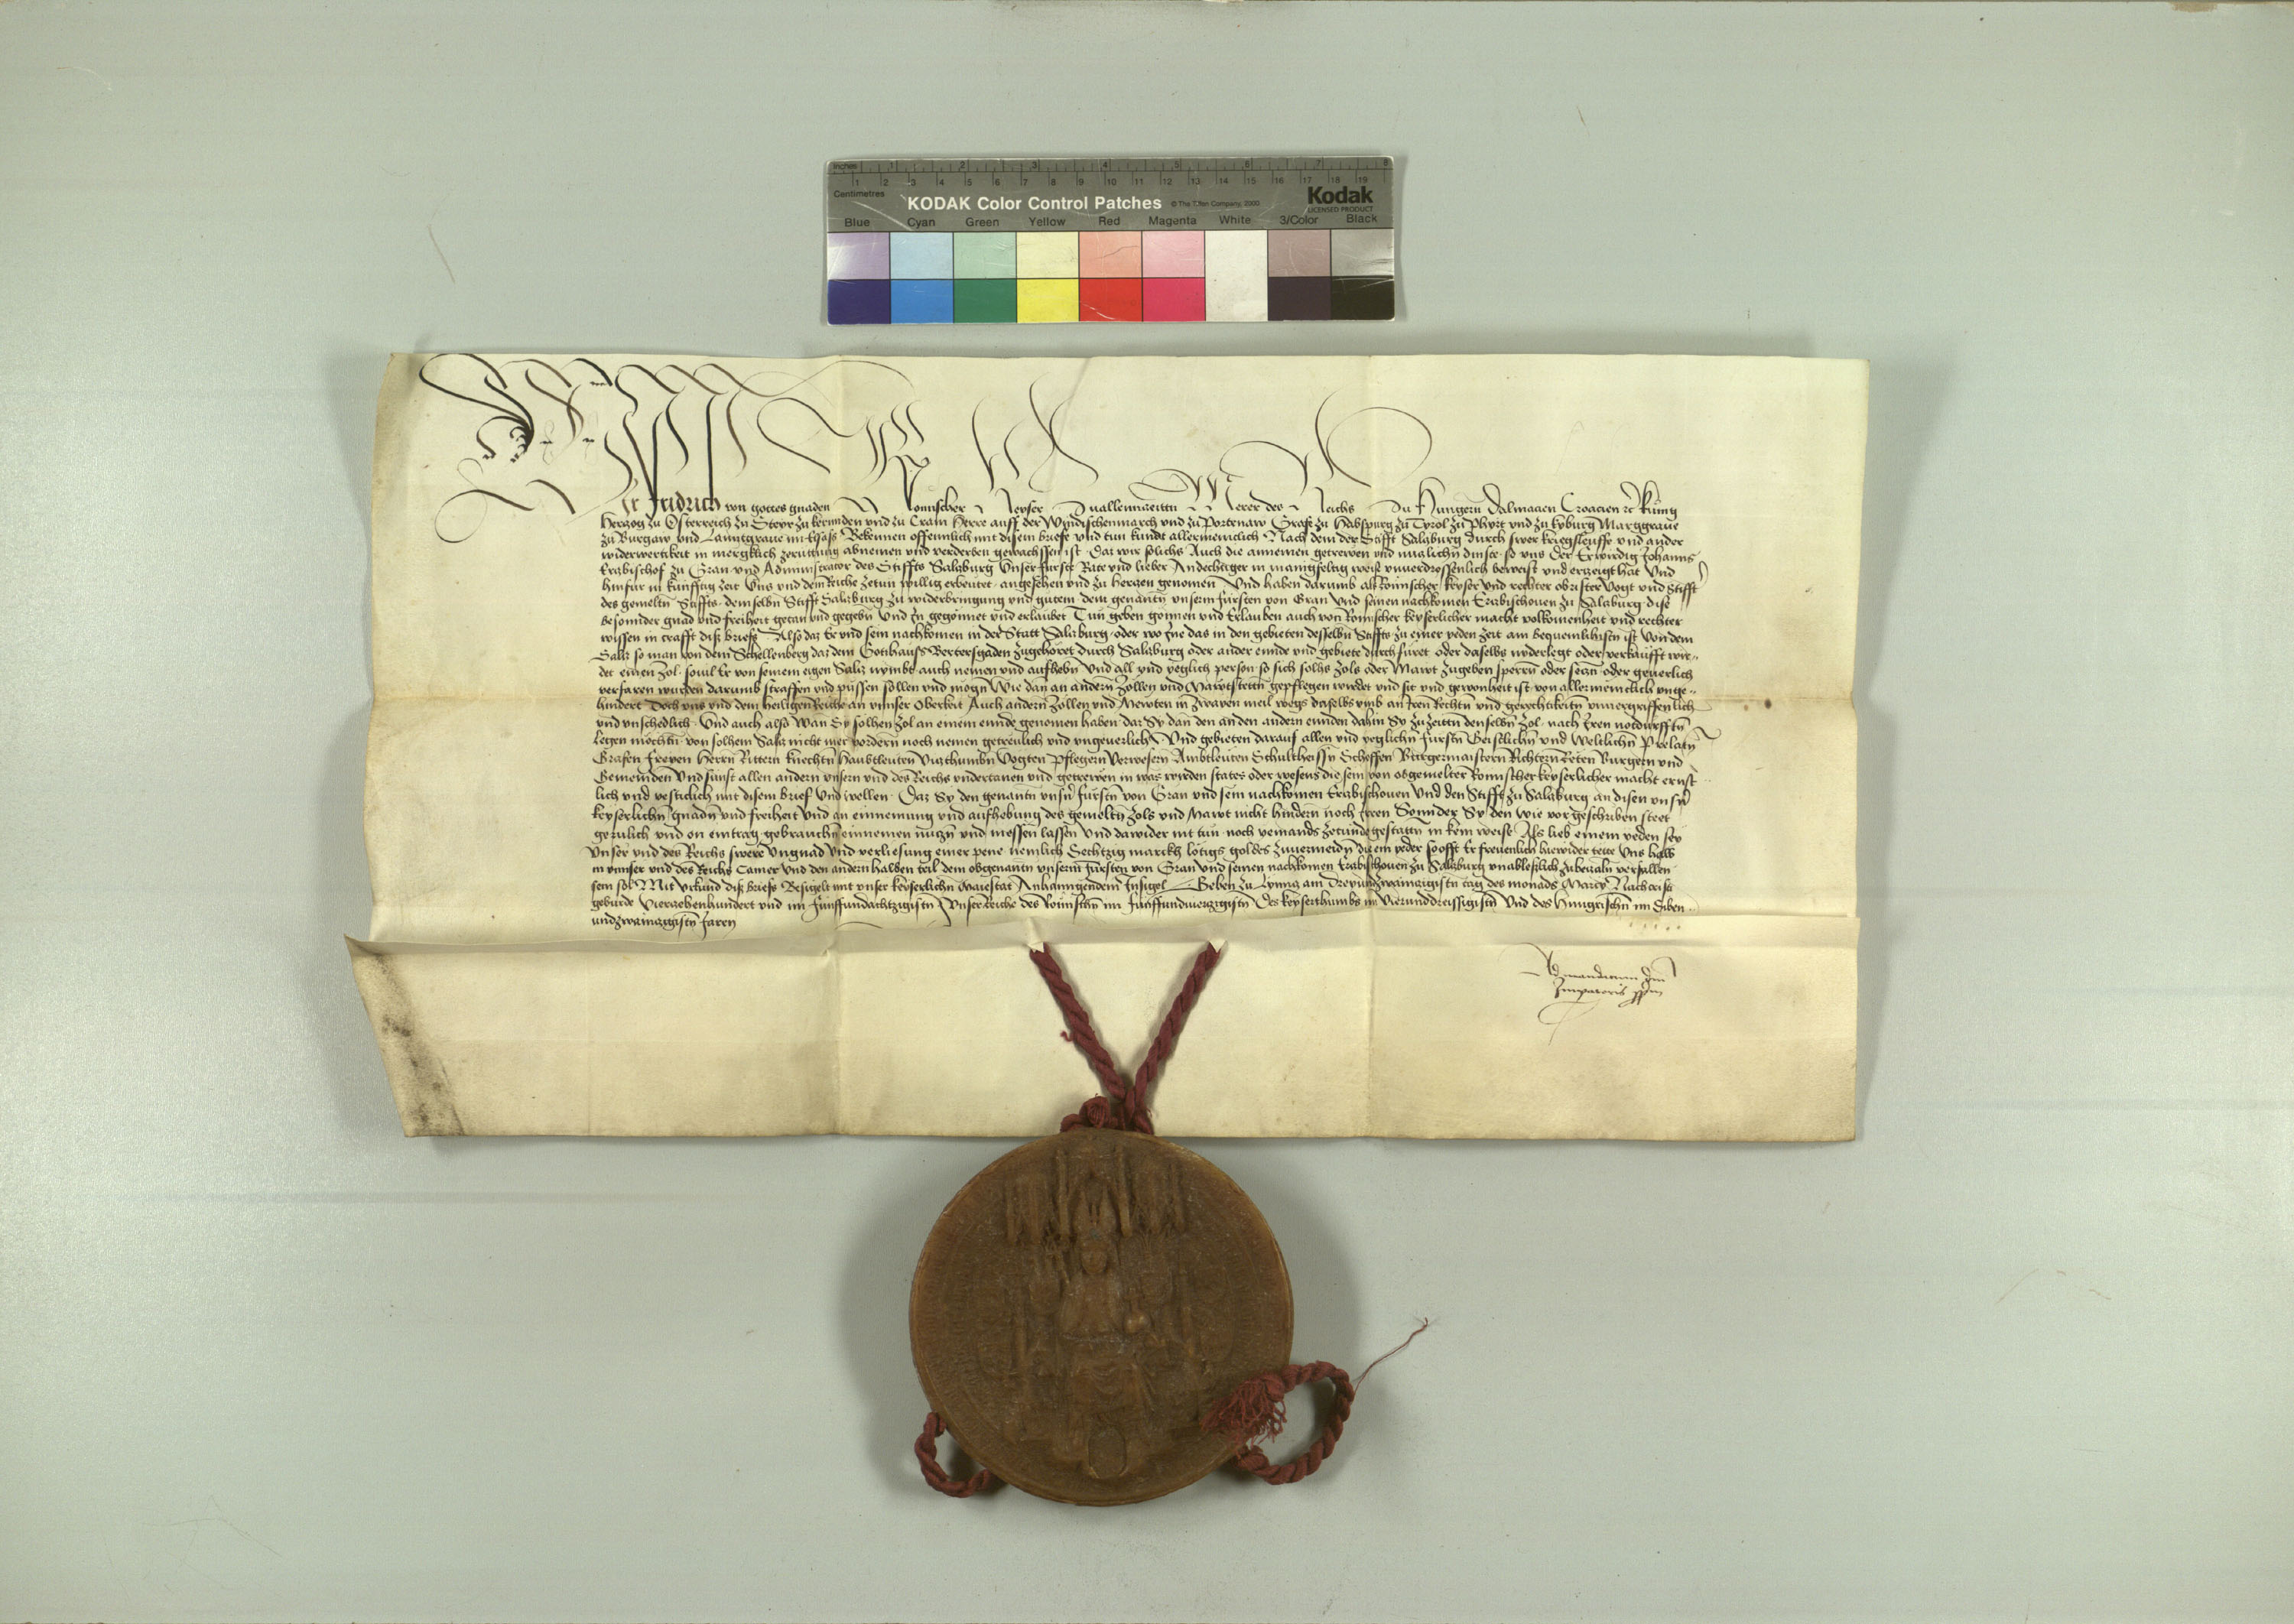 Inches 1 2 3 4 5 6 7 8
Centimetres 1 2 3 4 5 6 7 8 9 10 11 12 13 14 15 16 17 18 19
KODAK Color Control Patches © The Tiffen Company, 2000 Kodak
LICENSED PRODUCT
Blue Cyan Green Yellow Red Magenta White 3/Color Black
Wir Fridrich von gottes gnaden Romischer Keyser Zuallenntzeittn Merer des Reichs Zu Hungern Dalmacien Croacien ꝛc Kunig
Hertzog zu Osterreich zu Steyr zu kernnden und zu Crain Herre auff der Wyndischenmarch und zu Portenaw Grafe zu Habspurg zu Tyrol zu Phyrt und zu kyburg Marggraue
zu Burgaw und Lanntgraue im Elsass Bekennen offennlich mit disem briefe und tun kundt allermeinclich Nach dem der Stifft Saltzburg durch swer kriegsleuffe und ander
widerwertikeit in mergklich zeruttung abnemen und verderben gewachssen ist Daz wir solichs Auch die annemen getrewen und nuzlichn dinste so uns Der Erwirdig Johanns
Ertzbischof zu Gran und Administrator des Stiffts Saltzburg Unser furste Rate und lieber Andechtiger in manigfeltig weise unuerdrossenlich beweist und erzeigt hat Und
hinfur in kunfftig zeit Uns und dem Reiche zetun willig erbeutet angesehen und zu hertzen genomen Und haben darumb als Romischer keyser und rechter obrister Vogt und Stifft
des gemeltn Stiffts demselbn Stifft Saltzburg zu widerbringung und gutem dem genantn unserm fursten von Gran Und seinen nachkomen Ertzbischouen zu Saltzburg dise
besonnder gnad und freiheit getan und gegebn Und In gegonnet und erlaubet Tun geben gonnen und Erlauben auch von Romischer keyserlicher macht volkomenheit und rechter
wissen in crafft diss briefs Also daz Er und sein nachkomen in der Statt Saltzburg oder wo Ine das in den gebieten desselbn Stiffts zu einer yeden zeit am bequemlichistn ist Von dem
Saltz so man von dem Schellenberg daz dem Gottshauss Berttersgaden zugehoret durch Saltzburg oder ander ennde und gebiete durchfuret oder daselbs nyderlegt oder verkaufft wir
det einen Zol souil Er von seinem eigen Saltz nymbt auch nemen und aufhebn Und all und yeglich person so sich solhs Zols oder Mawt zugeben sperrn oder setzn oder geuerlich
verfaren wurden darumb straffen und pussen sollen und mogn Wie dan an andern Zollen und Mawtstettn gepflegen wirdet und sit und gewonheit ist von allermeinclich unge
hindert Doch uns und dem heiligen Reiche an unnser Oberkeit Auch andern Zollen und Mewten in zwayen meil wegs daselbs umb an Iren Rechtn und gerechtikeitn unuergriffenlich
und unschedlich Und auch also Wan Sy solhen Zol an einem ennde genomen haben daz Sy dan den an den andern ennden dahin Sy zu zeittn denselbn Zol nach Iren notdurfftn
legen mochtn von solhem Saltz nicht mer vordern noch nemen getreulich und ungeuerlich Und gebieten darauf allen und yeglichn Furstn Geistlichn und Weltlichn Prelatn
Grafen Freyen Herrn Rittern knechtn Haubtleuten Vitzthumbn Vogten Pflegern Verwesern Ambtleuten Schultheissn Scheffen Burgermaistern Richtern Reten Burgern und
Gemeinden Und sunst allen andern unsern und des Reichs undertanen und getrewen in was wirden states oder wesens die sein von obgemelter Romischer keyserlicher macht ernst
lich und vesticlich mit disem brief Und wellen Daz Sy den genantn unsn Furstn von Gran und sein nachkomen Ertzbischouen Und den Stifft zu Saltzburg an disen unsn
keyserlichn gnadn und freiheit Und an einnemung und aufhebung des gemeltn Zols und Mawt nicht hindern noch Irren Sonnder Sy den wie vorgeschriben steet
gerulich und on eintrag gebrauchn einnemen nutzn und niessen lassen Und dawider nit tun noch yemands zetunde gestattn in kein weise Als lieb einem yeden sey
Unser und des Reichs swere Ungnad Und verliesung einer pene nemlich Sechtzig marckh lotigs goldes zuuermeidn die ein yeder so offt Er freuenlich hiewider tette Uns halb
in unnser und des Reichs Camer Und den andern halben teil dem obgenantn unserm Fursten von Gran Und seinen nachkomen Ertzbischouen zu Saltzburg unablesslich zubetzaln verfallen
sein sol Mit Urkund diss briefs Besigelt mit unser keyserlichn Maiestat Anhanngendem Insigel Geben zu Lynntz am Dreyundzwaintzigistn tag des monads Marcy Nach cristi
geburde Viertzehenhundert und im Funffundachtzigistn Unser Reiche des Romischn im Funffundviertzigistn Des keyserthumbs im Vierunddreissigistn Und des Hungrischn im Siben
undzwaintzigistn Jaren
Ad mandatum dni
Imperatoris ppm